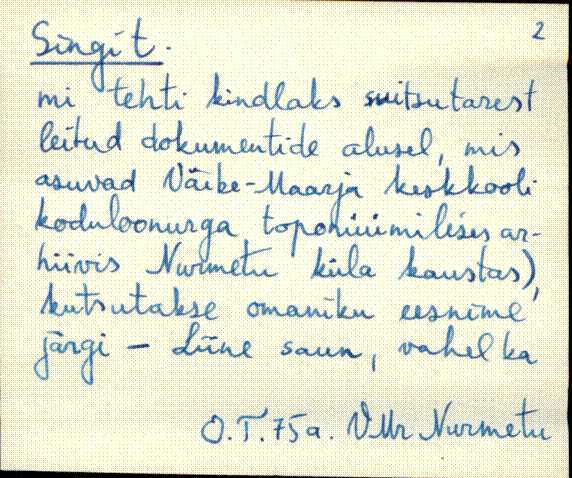 Singit. 2
mi tehti kindlaks suitsutarest
leitud dokumentide alusel, mis
asuvad Väike-Maarja keskkooli
koduloonurga toponüümilises ar-
hiivis Nurmetu küla kaustas),
kutsutakse omaniku eesnime
järgi – Liine saun, vahel ka
O.T. 75a. VMr Nurmetu